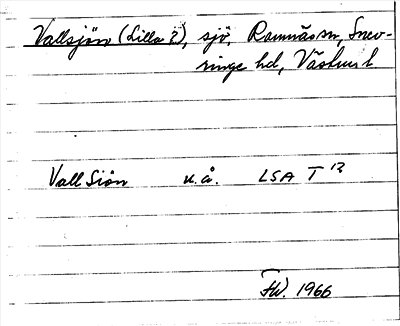 Vallsjön (Lilla?), sjö, Ramnäs sn, Snev-
ringe hd, Västml l
Vall Siön u.å. LSA T 12
HW. 1966